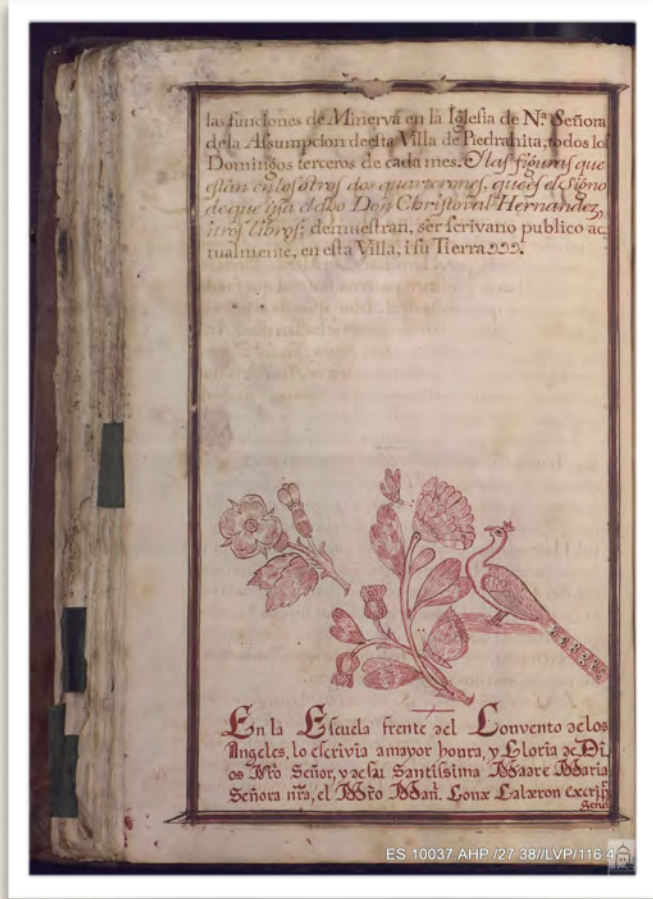 las funciones de Minerva en la Iglesia de Nª Señora
dela Assumpcion deesta Villa de Piedrahita, todos los
Domingos terceros de cada mes. O las figuras que
están en los otros dos quarterones, que és el signo
de que usa el dho Don Christoval Hernandez,
i tros libros; demuestran, sèr scrivano publico ac
tualmente, en esta Villa, i su Tierra
En la Escuela frente del Convento de los
Angeles, lo escrivia a mayor honra, y Gloria de Di
os Nrò Señor, y de su Santissima Madre Maria
Señora nrã, el Mrò Man.
ES 10037.AHP /27 38//LVP/116-4